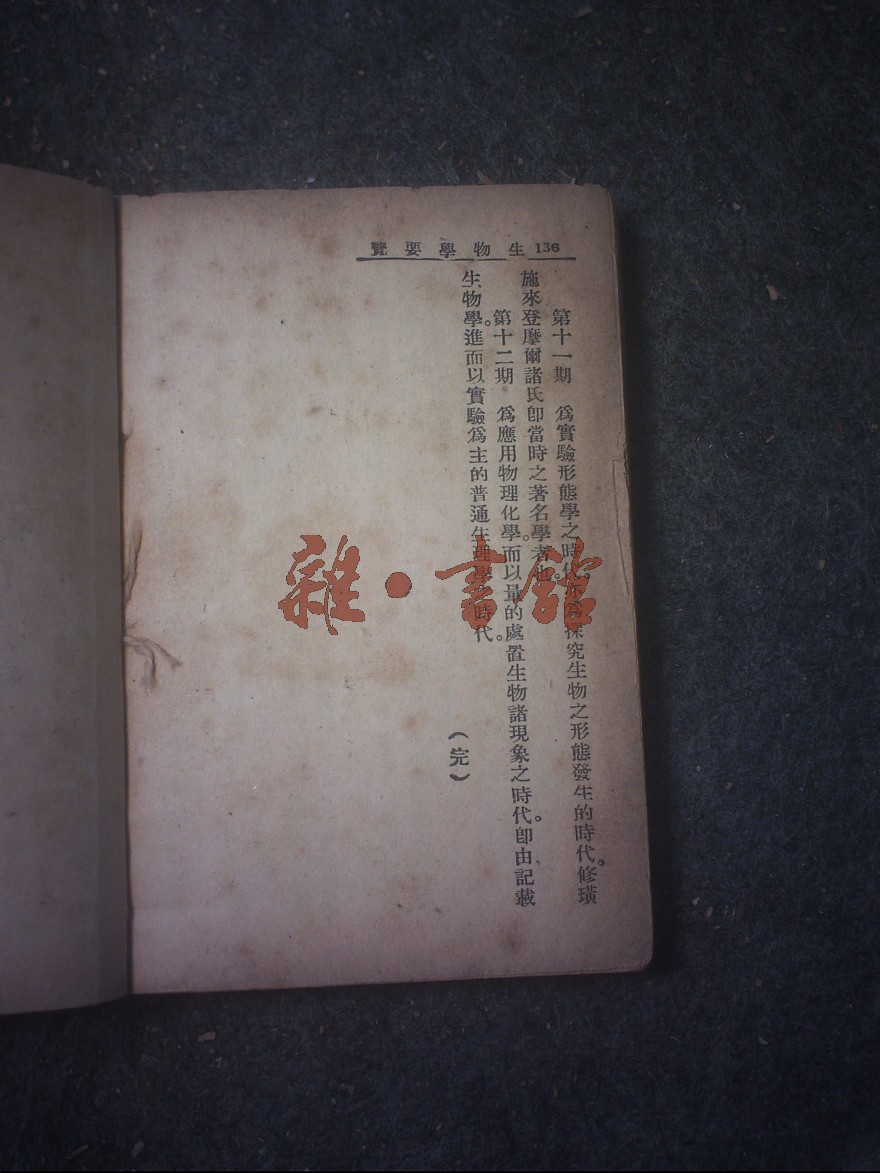 136 生物學要覽
第十一期 爲實驗形態學之時代。亦爲探究生物之形態發生的時代。修璜
施來登摩爾諸氏卽當時之著名學者也。
第十二期 爲應用物理化學。而以量的處置生物諸現象之時代。卽由記載
生物學。進而以實驗爲主的普通生理學之時代。
(完)
雜·書館